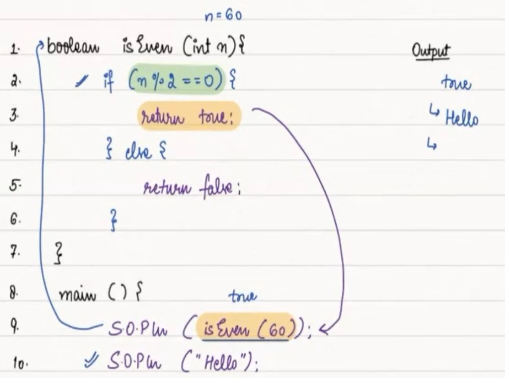 n=60
1. boolean isEven (int n){
Output
2. if (n%2==0) {
true
3. return true;
Hello
4. } else {
5. return false;
6. }
7. }
8. main () {
true
9. S.O.Pln (isEven (60));
10. S.O.Pln ("Hello");